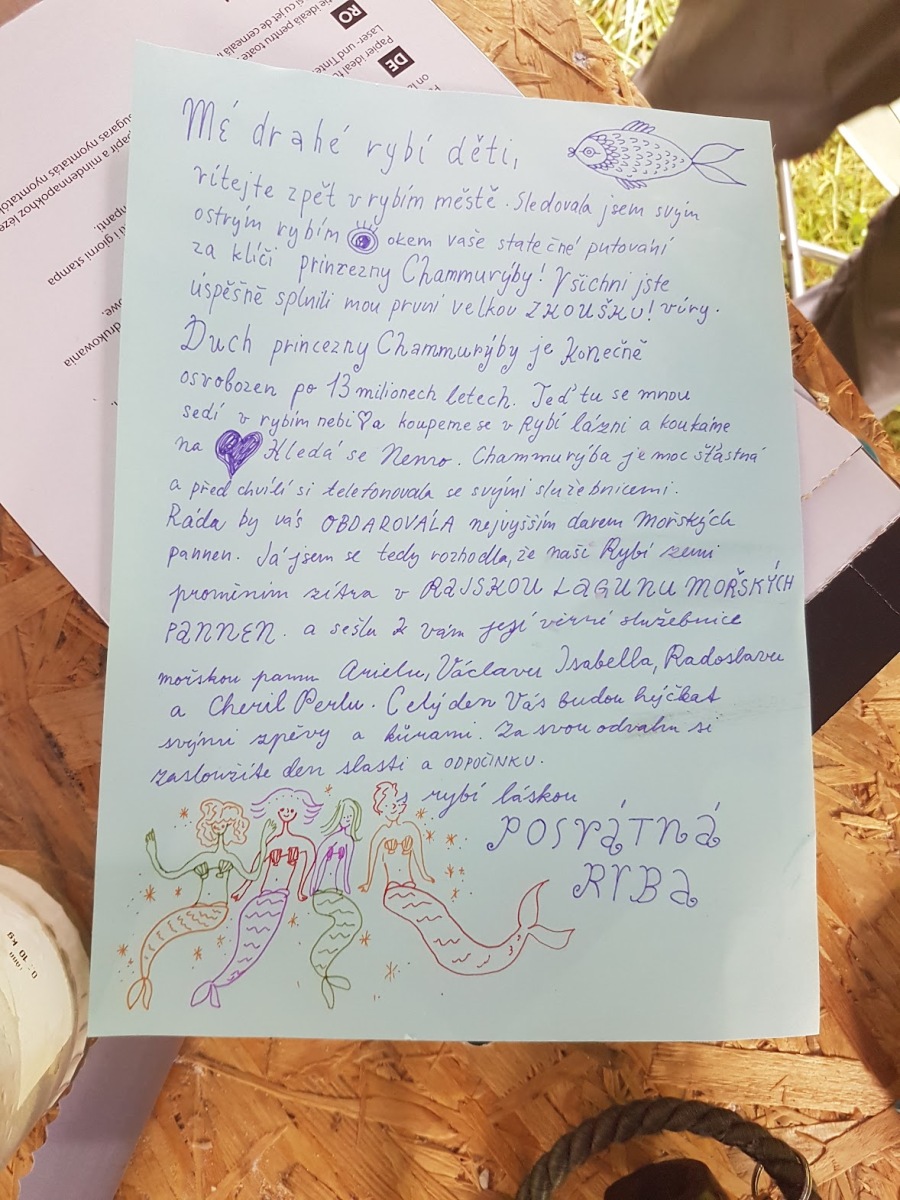 RO
DE
Mé drahé rybí děti,
vítejte zpět v rybím městě. Sledovala jsem svým
ostrým rybím okem vaše statečné putování
za klíči princezny Chammurýby! Všichni jste
úspěšně splnili mou první velkou ZKOUŠKU! víry.
Duch princezny Chammurýby je konečně
osvobozen po 13 milionech letech. Teď tu se mnou
sedí v rybím nebi a koupeme se v Rybí lázni a koukáme
na Hledá se Nemo. Chammurýba je moc šťastná
a před chvílí si telefonovala se svými služebnicemi.
Ráda by vás OBDAROVALA nejvyšším darem Mořských
pannen. Já jsem se tedy rozhodla, že naši Rybí zemi
proměním zítra v RAJSKOU LAGUNU MOŘSKÝCH
PANNEN. a sešlu k vám její věrné služebnice
mořskou pannu Arielu, Václavu Isabella, Radoslavu
a Cheril Perlu. Celý den Vás budou hýčkat
svými zpěvy a kůrami. Za svou odvahu si
zasloužíte den slasti a ODPOČINKU.
S rybí láskou
POSVÁTNÁ
RYBA